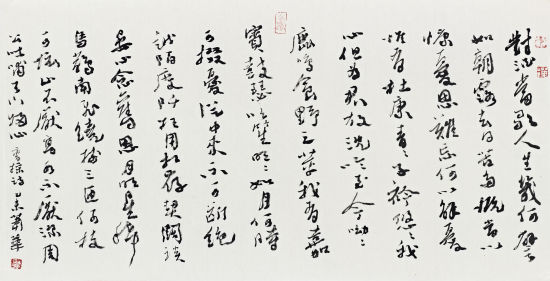 對酒當歌人生幾何譬
如朝露去日苦多慨當以
慷憂思難忘何以解憂
惟有杜康青々子衿悠々我
心但为君故沉吟至今呦々
鹿鳴食野之苹我有嘉
賓鼓瑟吹笙明々如月何時
可掇憂從中来不可斷絕
越陌度阡枉用相存契闊談
宴心念舊恩月明星稀
烏鵲南飛繞樹三匝何枝
可依山不厭高水不厭深周
公吐哺天下歸心 曹操詩 蕭華